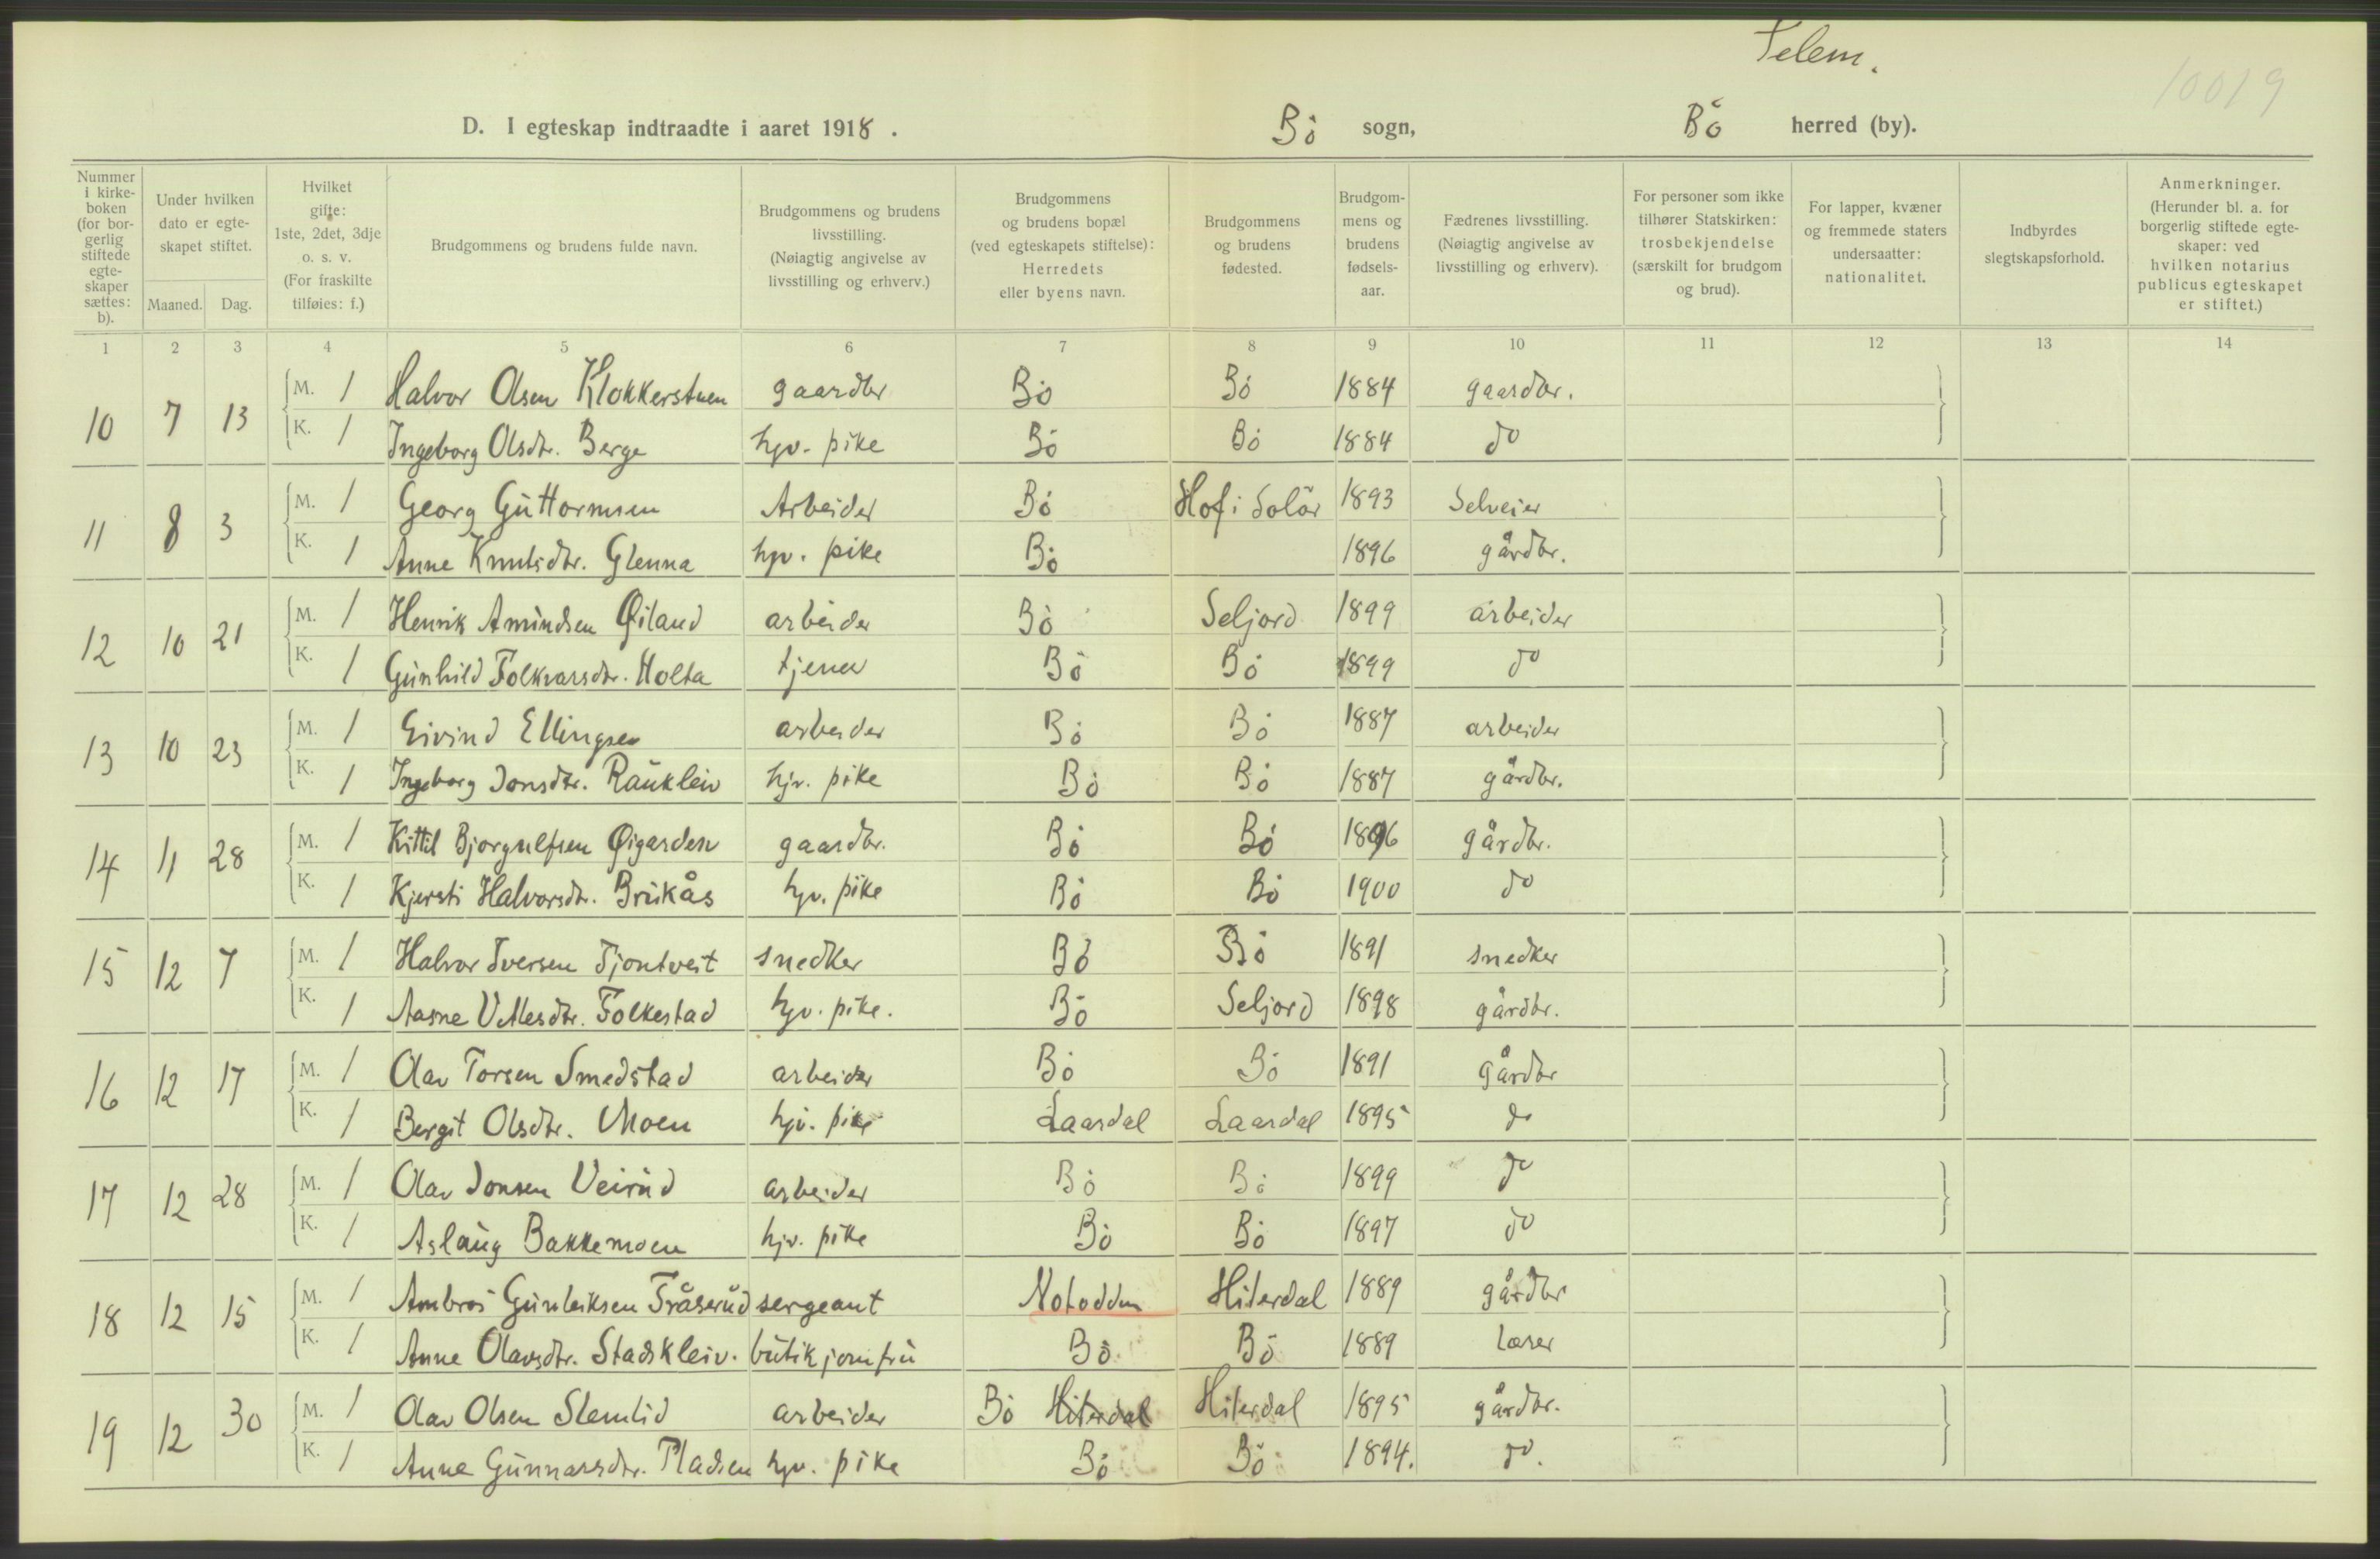 Telem.
10019
D. I egteskap indtraadte i aaret 1918. Bö sogn, Bö herred (by).
Nummer i kirke-boken (for bor-gerlig stiftede egte-skaper sættes: b).
Under hvilken dato er egte-skapet stiftet.
Maaned. Dag.
Hvilket gifte: 1ste, 2det, 3dje o. s. v. (For fraskilte tilføies: f.)
Brudgommens og brudens fulde navn.
Brudgommens og brudens livsstilling. (Nøiagtig angivelse av livsstilling og erhverv.)
Brudgommens og brudens bopæl (ved egteskapets stiftelse): Herredets eller byens navn.
Brudgommens og brudens fødested.
Brudgom-mens og brudens fødsels-aar.
Fædrenes livsstilling. (Nøiagtig angivelse av livsstilling og erhverv).
For personer som ikke tilhører Statskirken: trosbekjendelse (særskilt for brudgom og brud).
For lapper, kvæner og fremmede staters undersaatter: nationalitet.
Indbyrdes slegtskapsforhold.
Anmerkninger. (Herunder bl. a. for borgerlig stiftede egte-skaper: ved hvilken notarius publicus egteskapet er stiftet.)
1 2 3 4 5 6 7 8 9 10 11 12 13 14
10 7 13 M. 1 Halvor Olsen Klokkerstuen gaardbr Bö Bö 1884 gaardbr.
K. 1 Ingeborg Olsdtr. Berge hjv. pike Bö Bö 1884 do
11 8 3 M. 1 Georg Guttormsen Arbeider Bö Hof i Solör 1893 Selveier
K. 1 Anne Knutsdtr. Glenna hjv. pike Bö 1896 gårdbr.
12 10 21 M. 1 Henrik Amundsen Øiland arbeider Bö Seljord 1899 arbeider
K. 1 Gunhild Folkvarsdtr. Holta tjener Bö Bö 1899 do
13 10 23 M. 1 Eivind Ellingsen arbeider Bö Bö 1887 arbeider
K. 1 Ingeborg Jonsdtr. Raukleiv hjv. pike Bö Bö 1887 gårdbr.
14 11 28 M. 1 Kittil Bjorgulfsen Øigarden gaardbr. Bö Bö 1896 gårdbr.
K. 1 Kjersti Halvorsdtr. Brukås hjv. pike Bö Bö 1900 do
15 12 7 M. 1 Halvor Iversen Tjontveit snedker Bö Bö 1891 snedker
K. 1 Aasne Vetlesdtr. Folkestad hjv. pike. Bö Seljord 1898 gårdbr.
16 12 17 M. 1 Olav Torsen Smedstad arbeider Bö Bö 1891 gårdbr
K. 1 Bergit Olsdtr. Moen hjv. pike Laardal Laardal 1895 do
17 12 28 M. 1 Olav Jonsen Veirud arbeider Bö Bö 1899 do
K. 1 Aslaug Bakkemoen hjv. pike Bö Bö 1897 do
18 12 15 M. 1 Ambros Gunleiksen Tråserud sergeant Notodden Hiterdal 1889 gårdbr
K. 1 Anne Olavsdtr. Stadskleiv. butikjomfru Bö Bö 1889 lærer
19 12 30 M. 1 Olav Olsen Slemlid arbeider Bö Hiterdal Hiterdal 1895 gårdbr.
K. 1 Anne Gunnarsdtr. Pladsen hjv. pike Bö Bö 1894. do.